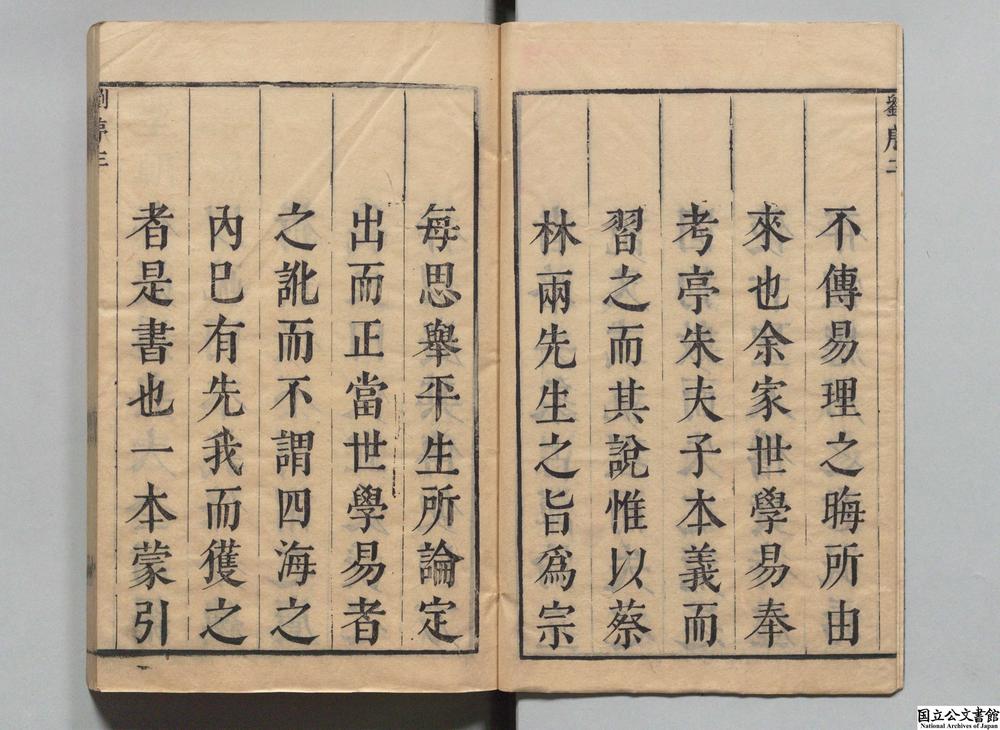 劉序二
不傳易理之晦所由
來也余家世學易奉
考亭朱夫子本義而
習之而其說惟以蔡
林兩先生之旨爲宗
每思舉平生所論定
出而正當世學易者
之訛而不謂四海之
內已有先我而獲之
者是書也一本蒙引
劉序三
国立公文書館
National Archives of Japan